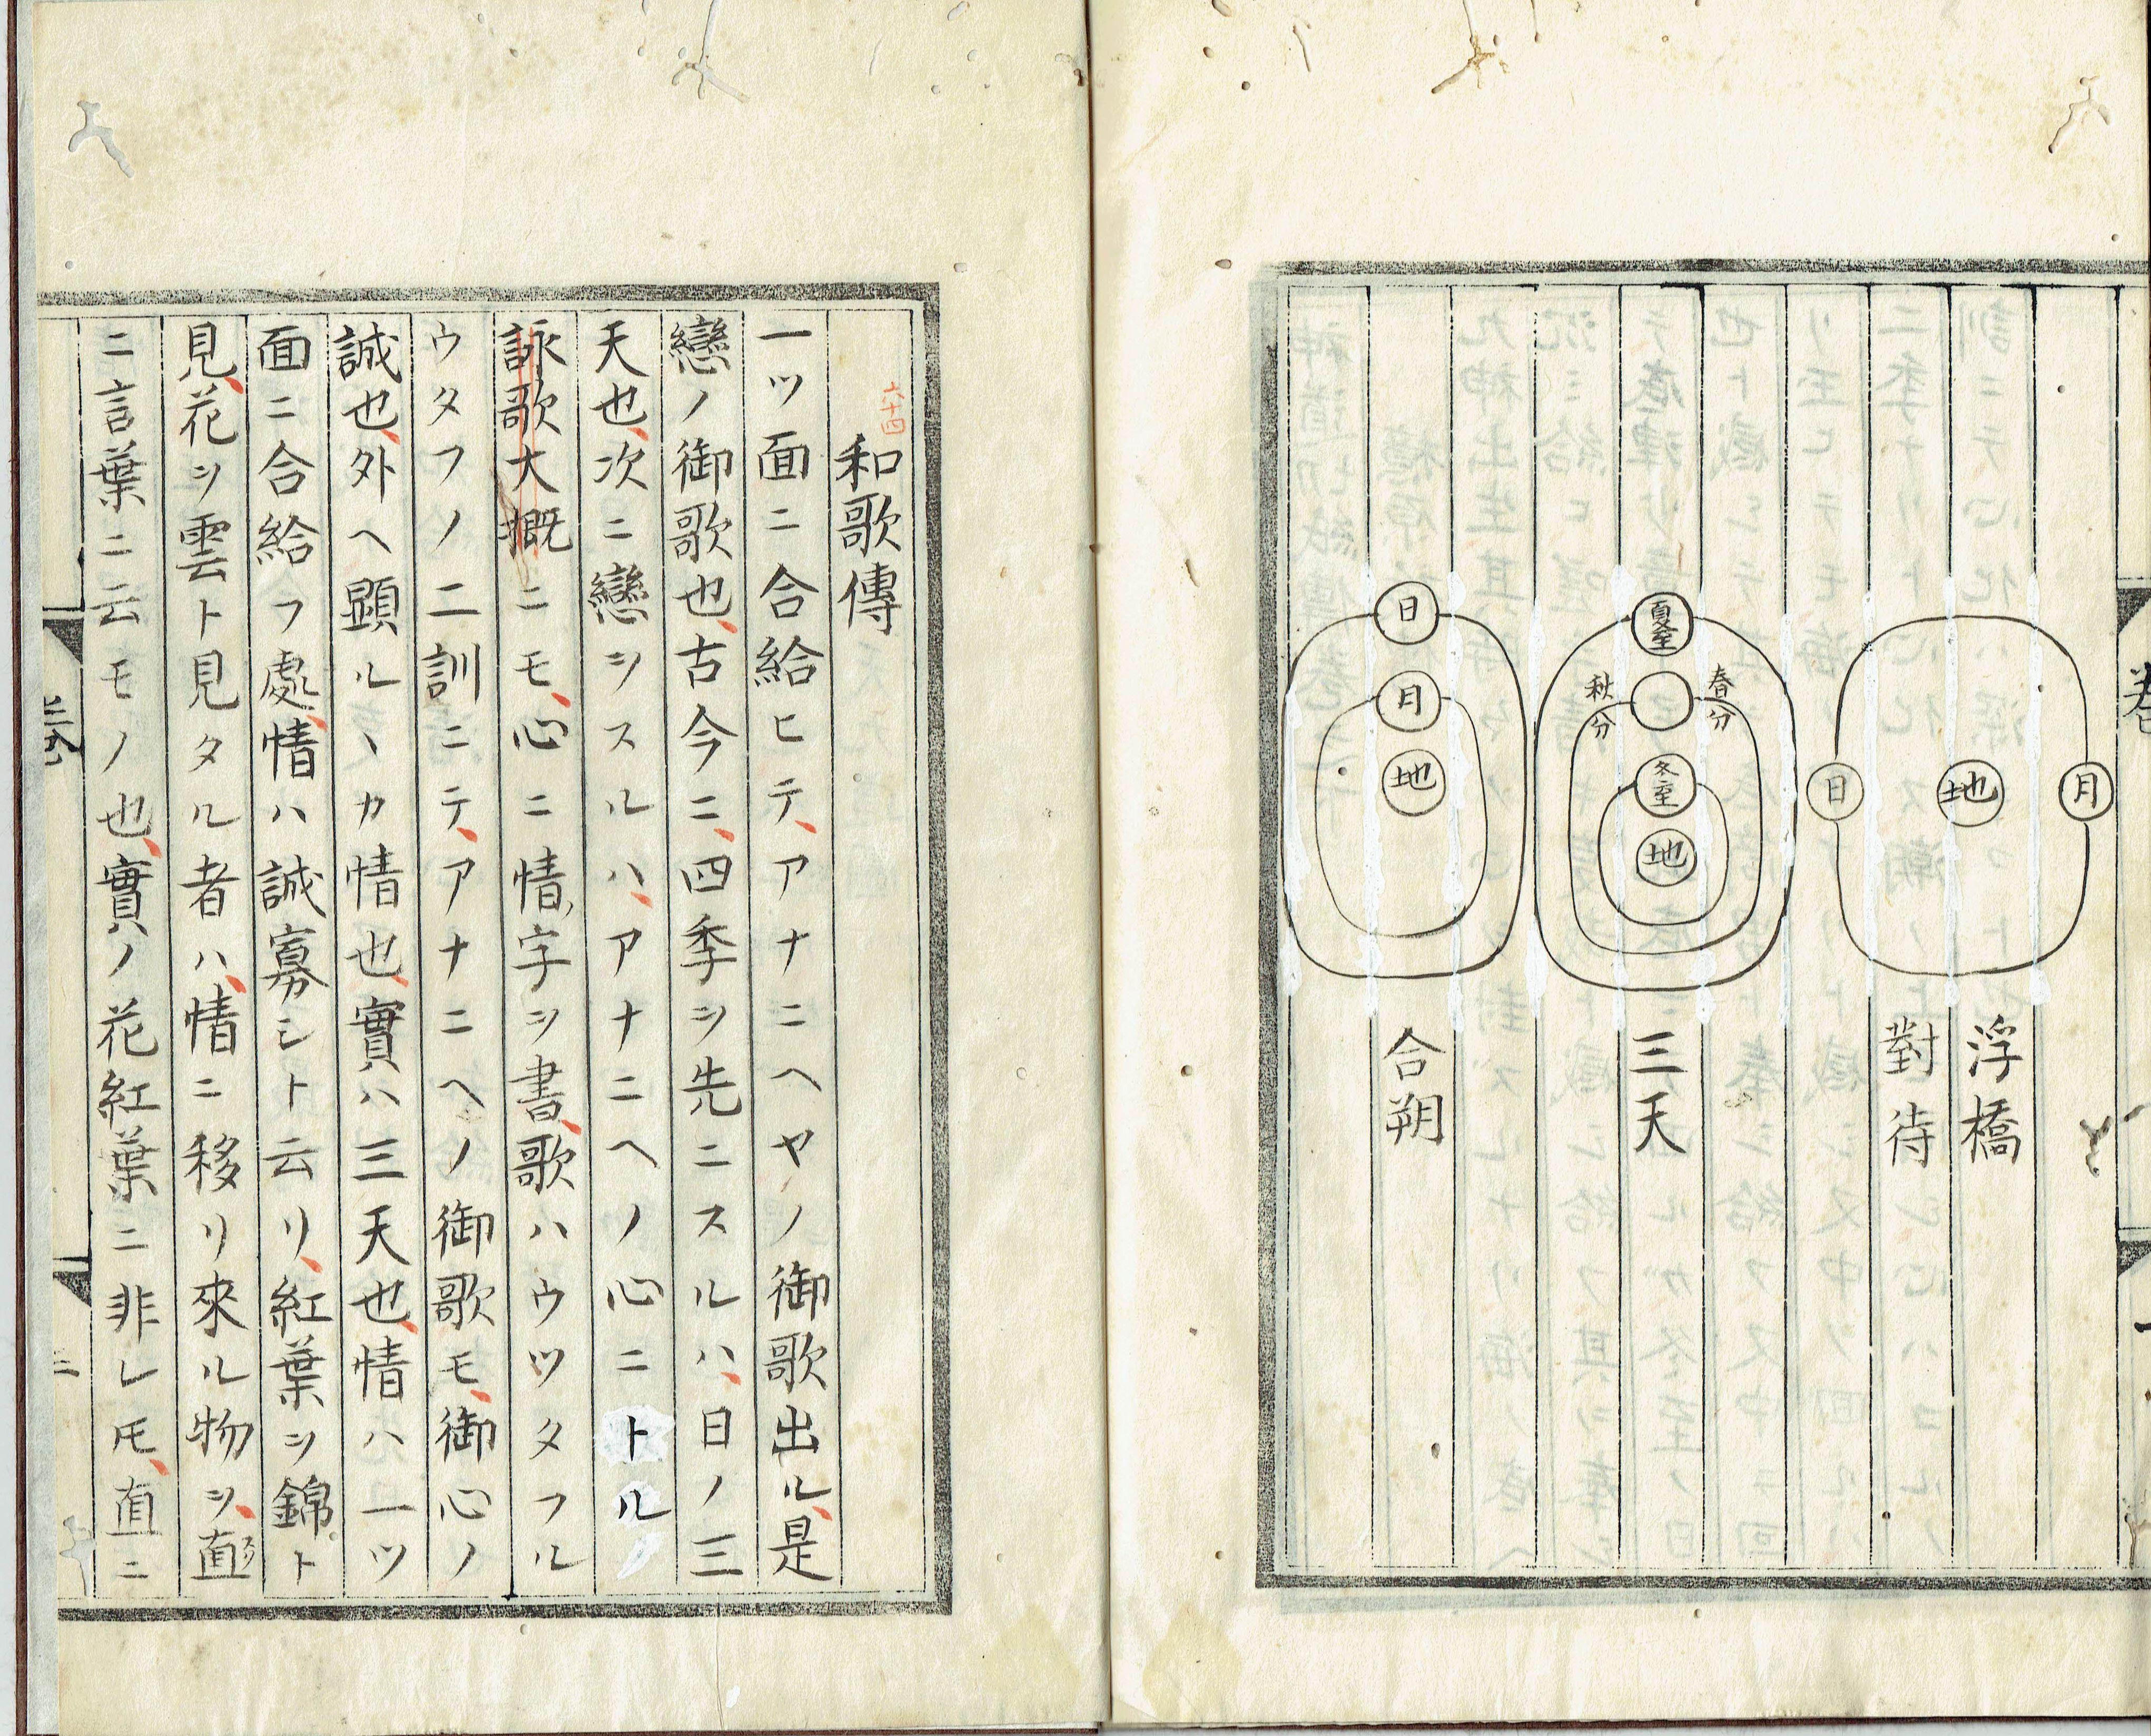 月
地
日
浮橋
對待
夏至
春分
秋分
冬至
地
三天
日
月
地
合朔
六十四
和歌傳
一ツ面ニ合給ヒテ、アナニヘヤノ御歌出ル、是
戀ノ御歌也、古今ニ、四季ヲ先ニスルハ、日ノ三
天也、次ニ戀ヲスルハ、アナニヘノ心ニトル
詠歌大概ニモ、心ニ情ノ字ヲ書、歌ハウツタフル
ウタフノ二訓ニテ、アナニヘノ御歌モ、御心ノ
誠也、外ヘ顕ルヽカ情也、實ハ三天也、情ハ一ツ
面ニ合給フ處、情ハ誠寡シト云リ、紅葉ヲ錦ト
見、花ヲ雲ト見タル者ハ、情ニ移リ來ル物ヲ、直
ニ言葉ニ云モノ也、實ノ花紅葉ニ非レ𪜈、直ニ
三